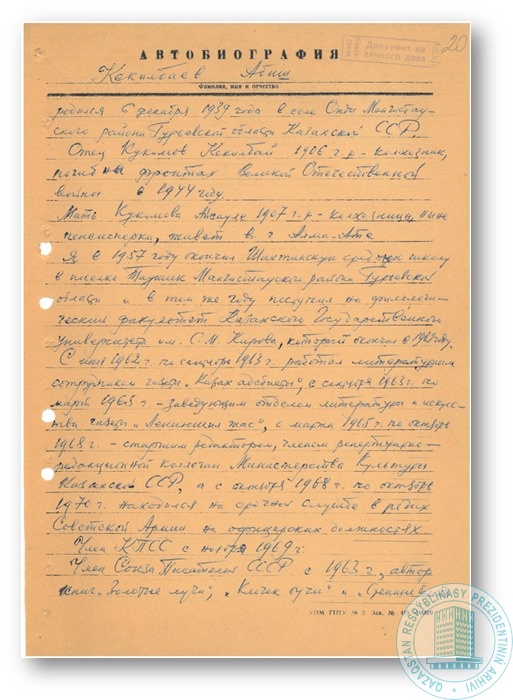 20
Документ из
личного дела
АВТОБИОГРАФИЯ
Кекилбаев Абиш
Фамилия, имя и отчество
родился 6 декабря 1939 года в селе Онды Мангистау-
ского района Гурьевской области Казахской ССР.
Отец Кукимов Кекилбай 1906 г.р - колхозник,
погиб на фронтах Великой Отечественной
войны в 1944 году.
Мать Кукимова Айсауле 1907 г.р - колхозница, ныне
пенсионерка, живет в г. Алма-Ате
Я в 1957 году окончил Шахтинскую среднюю школу
в поселке Таушик Мангистауского района Гурьевской
области и в том же году поступил на филологи-
ческий факультет Казахского Государственного
Университета им. С.М. Кирова, который окончил в 1962 году.
С июня 1962 г. по сентябрь 1963 г. работал литературным
сотрудником газеты "Казах адебиеты", с сентября 1963 г. по
март 1965 г. - заведующим отделом литературы и искус-
ства газеты "Лениншил жас", с марта 1965 г. по октябрь
1968 г. - старшим редактором, членом репертуарно-
редакционной коллегии Министерства Культуры
Казахской ССР, а с октября 1968 г. по октябрь
1970 г. находился на срочной службе в рядах
Советской Армии на офицерских должностях
Член КПСС с ноября 1969 г.
Член Союза Писателей СССР с 1963 г., автор
книг "Золотые лучи", "Клочок тучи" и
УПМ ГПТУ № 2 Зак. №
QAZAQSTAN RESPÝBLIKASY PREZIDENTINIŃ ARHIVI